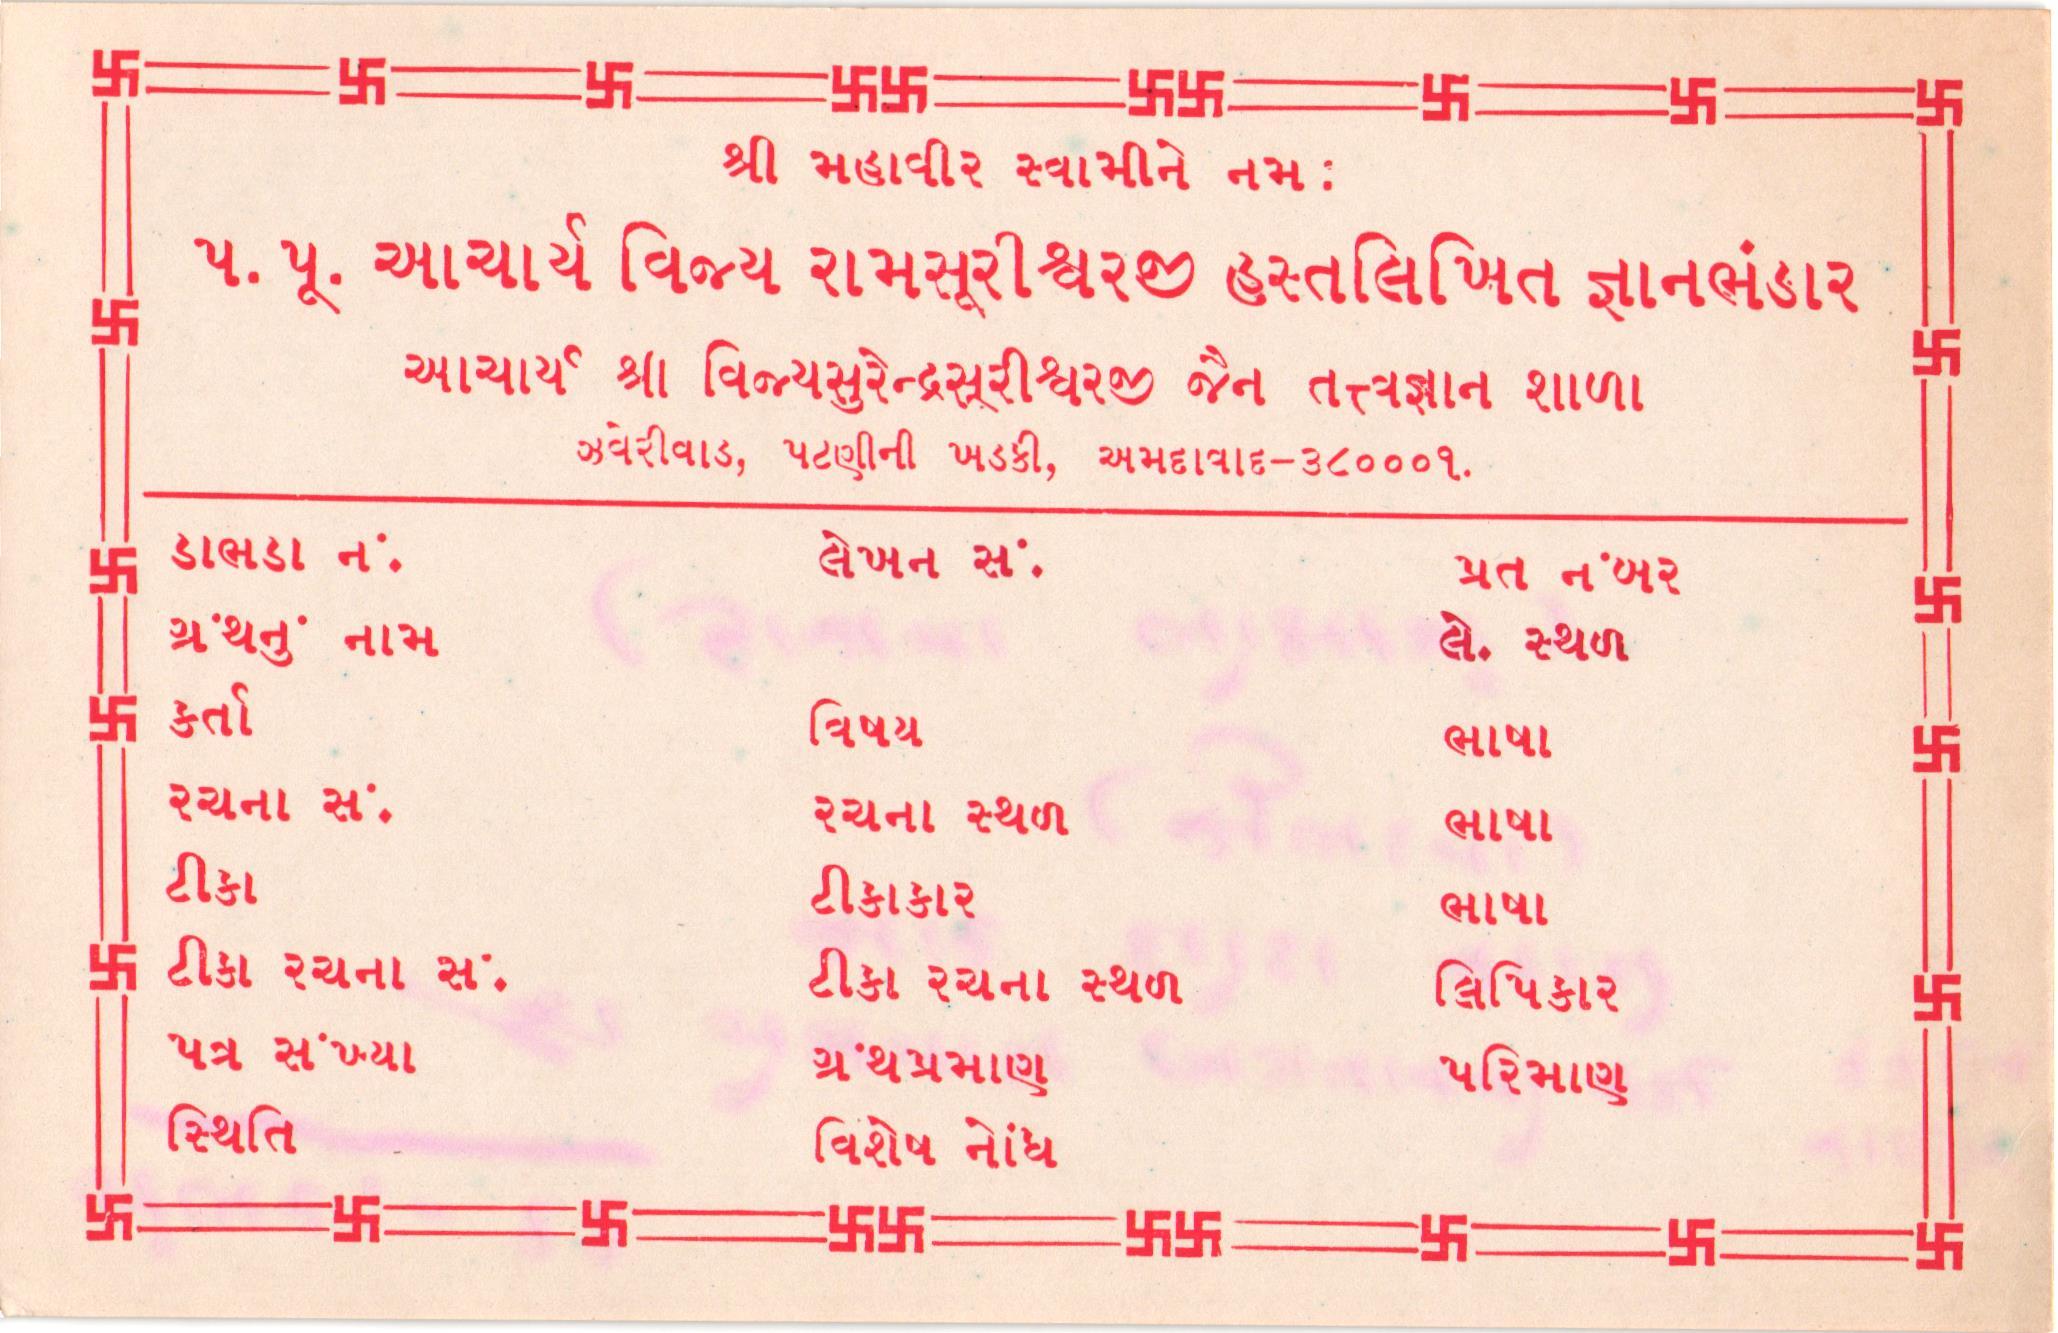 શ્રી મહાવીર સ્વામીને નમઃ
પ. પૂ. આચાર્ય વિજય રામસૂરીશ્વરજી હસ્તલિખિત જ્ઞાનભંડાર
આચાર્ય શ્રી વિજયસુરેન્દ્રસૂરીશ્વરજી જૈન તત્ત્વજ્ઞાન શાળા
ઝવેરીવાડ, પટણીની ખડકી, અમદાવાદ-૩૮૦૦૦૧.
ડાભડા નં. લેખન સં. પ્રત નંબર
ગ્રંથનું નામ લે. સ્થળ
કર્તા વિષય ભાષા
રચના સં. રચના સ્થળ ભાષા
ટીકા ટીકાકાર ભાષા
ટીકા રચના સં. ટીકા રચના સ્થળ લિપિકાર
પત્ર સંખ્યા ગ્રંથપ્રમાણ પરિમાણ
સ્થિતિ વિશેષ નોંધ